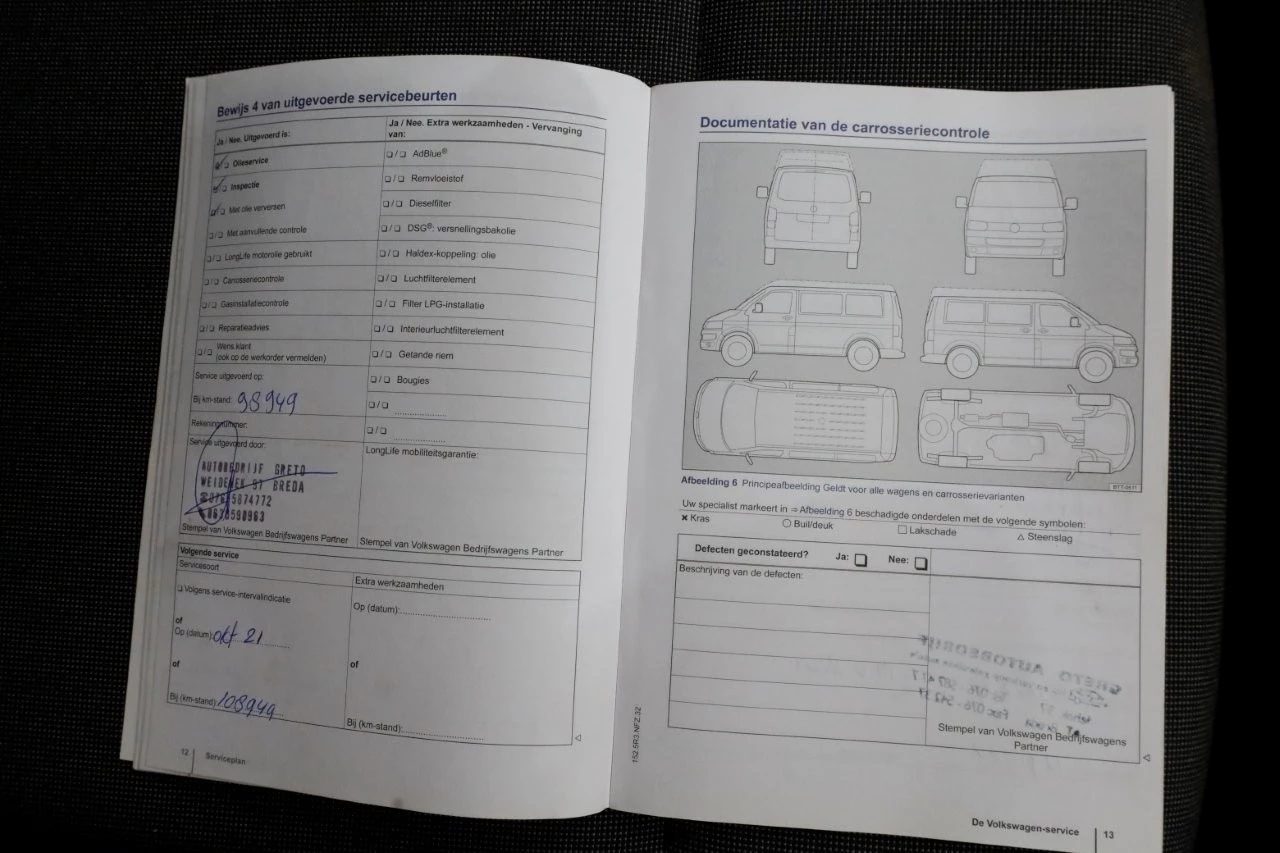 Bewijs 4 van uitgevoerde servicebeurten
Ja / Nee. Uitgevoerd is:
Ja / Nee. Extra werkzaamheden - Vervanging van:
Olieservice
Inspectie
Met olie verversen
Met aanvullende controle
LongLife motorolie gebruikt
Carrosseriecontrole
Gasinstallatiecontrole
Reparatieadvies
Wens klant
(ook op de werkorder vermelden)
Service uitgevoerd op:
Bij km-stand: 98949
Rekeningnummer:
Service uitgevoerd door:
AUTOBEDRIJF GRETO
BREDA
Stempel van Volkswagen Bedrijfswagens Partner
❏ / ❏ AdBlue®
❏ / ❏ Remvloeistof
❏ / ❏ Dieselfilter
❏ / ❏ DSG®: versnellingsbakolie
❏ / ❏ Haldex-koppeling: olie
❏ / ❏ Luchtfilterelement
❏ / ❏ Filter LPG-installatie
❏ / ❏ Interieurluchtfilterelement
❏ / ❏ Getande riem
❏ / ❏ Bougies
❏ / ❏ ....................
❏ / ❏ ....................
LongLife mobiliteitsgarantie:
Stempel van Volkswagen Bedrijfswagens Partner
Volgende service
Servicesoort
❏ Volgens service-intervalindicatie
of
Op (datum): okt 21
of
Bij (km-stand) 108949
Extra werkzaamheden
Op (datum):
of
Bij (km-stand):
12 Serviceplan
Documentatie van de carrosseriecontrole
BTT-0411
Afbeelding 6 Principeafbeelding Geldt voor alle wagens en carrosserievarianten
Uw specialist markeert in ⇒ Afbeelding 6 beschadigde onderdelen met de volgende symbolen:
✖ Kras ○ Buil/deuk □ Lakschade △ Steenslag
Defecten geconstateerd? Ja: ❏ Nee: ❏
Beschrijving van de defecten:
Stempel van Volkswagen Bedrijfswagens
Partner
152.5R3.NFZ.32
De Volkswagen-service 13